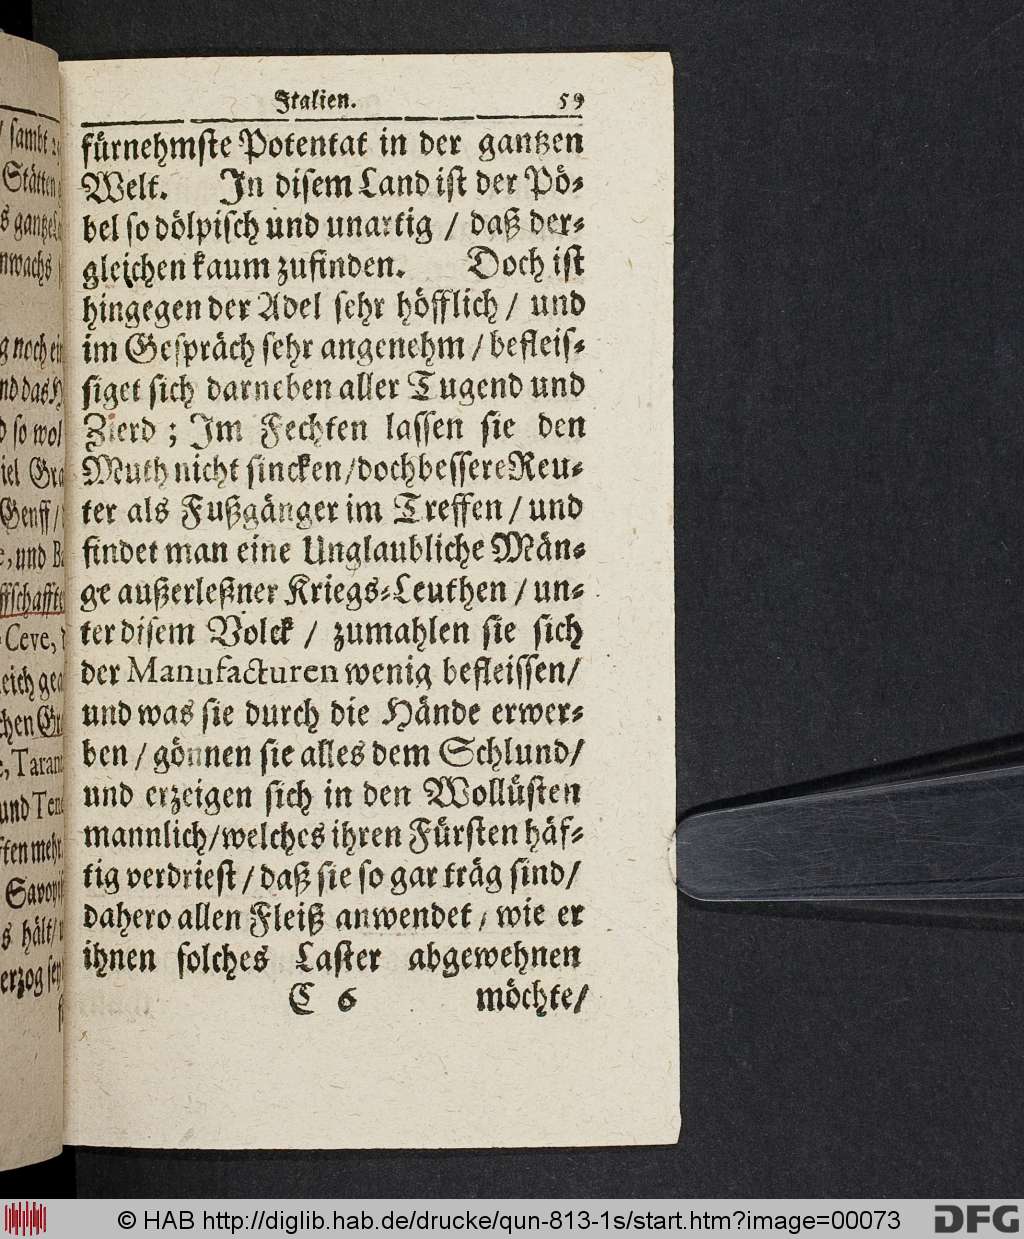 Italien. 59
fürnehmste Potentat in der gantzen
Welt. In disem Land ist der Pö-
bel so dölpisch und unartig / daß der-
gleichen kaum zufinden. Doch ist
hingegen der Adel sehr höfflich / und
im Gespräch sehr angenehm / befleis-
siget sich darneben aller Tugend und
Zierd ; Im Fechten lassen sie den
Muth nicht sincken / doch bessere Reu-
ter als Fußgänger im Treffen / und
findet man eine Unglaubliche Män-
ge außerleßner Kriegs-Leuthen / un-
ter disem Volck / zumahlen sie sich
der Manufacturen wenig befleissen /
und was sie durch die Hände erwer-
ben / gönnen sie alles dem Schlund /
und erzeigen sich in den Wollüsten
mannlich / welches ihren Fürsten häf-
tig verdriest / daß sie so gar träg sind /
dahero allen Fleiß anwendet / wie er
ihnen solches Laster abgewehnen
C 6 möchte /
/ sambt
Stätten
s gantze
nwachs
g noch ein
nd das H
d so wol
iel Gra
Genff /
e, und Ba
ffschafft
Ceve,
leich ge
chen Gr
e, Taran
und Ten
ften mehr
Savoy
s hält /
erzog sey
© HAB http://diglib.hab.de/drucke/qun-813-1s/start.htm?image=00073
DFG